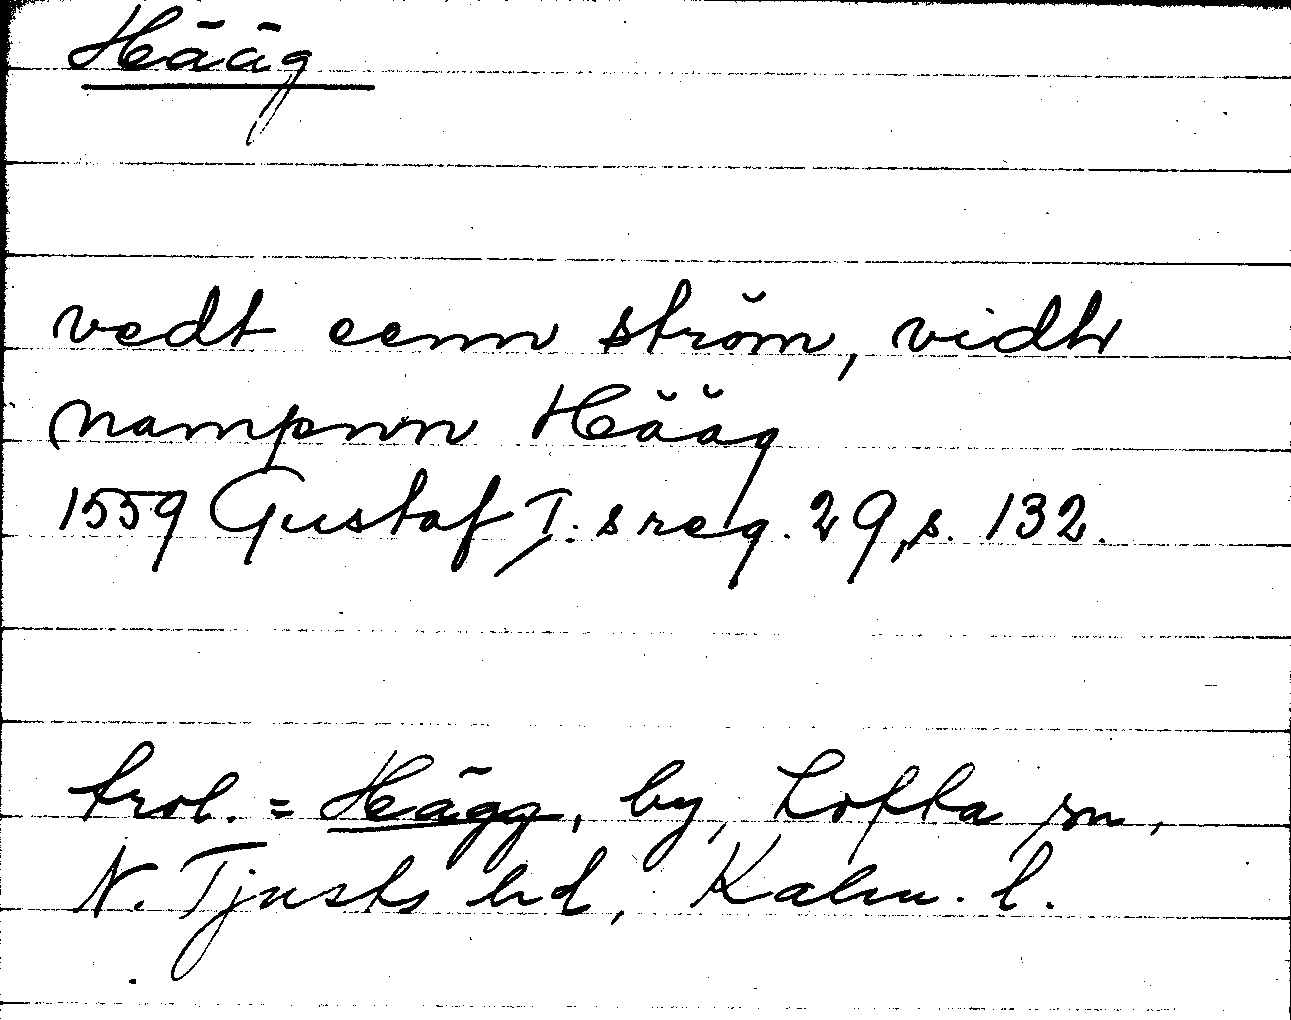 Hääg
vedt eenn ström, vidh
nampnn Hääg
1559 Gustaf I:s reg. 29, s. 132.
trol. = Hägg, by, Lofta sn,
N. Tjusts hd, Kalm. l.